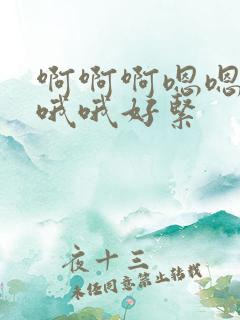 啊啊啊嗯嗯
哦哦好紧
夜十三
未经同意禁止转载